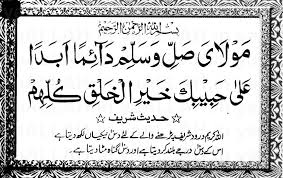 بِسْمِ اللهِ الرَّحْمٰنِ الرَّحِيْمِ
مَوْلَایَ صَلِّ وَسَلِّمْ دَآئِمًا اَبَدًا
عَلٰی حَبِیْبِكَ خَیْرِ الْخَلْقِ كُلِّهِمِ
حدیث شریف
اللہ کریم درود شریف پڑھنے والے کے لئے دس نیکیاں لکھ دیتا ہے
اس کے دس درجے بلند کر دیتا ہے اور دس گناہ مٹا دیتا ہے۔